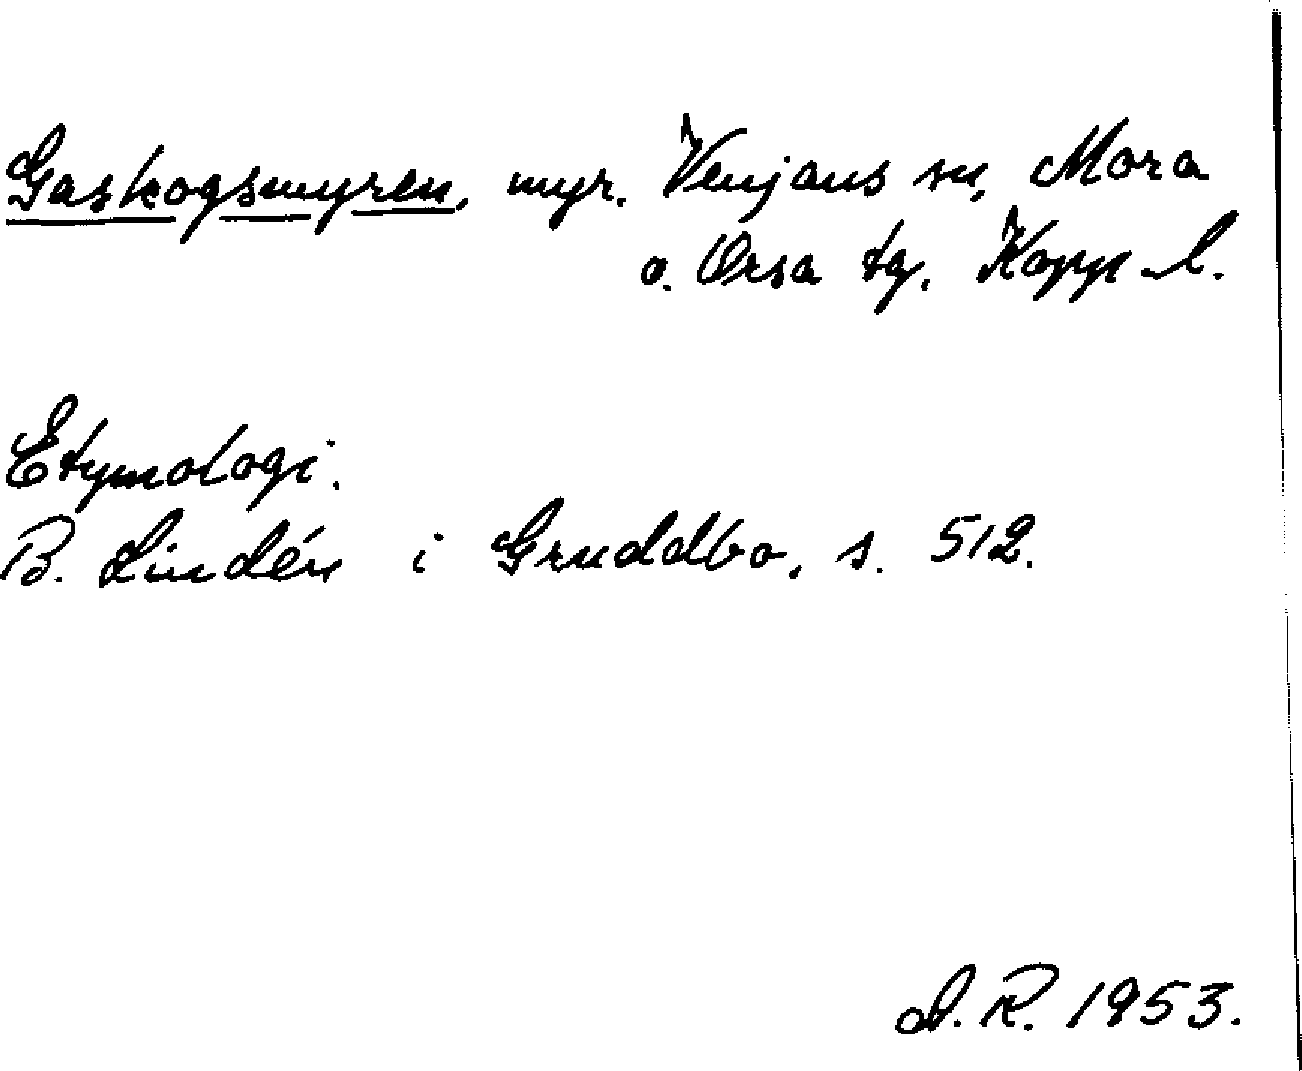 Gaskogsmyren, myr. Venjans sn, Mora
o. Orsa tg, Kopp. l.
Etymologi.
B. Lindén i Gruddbo, s. 512.
A. R. 1953.